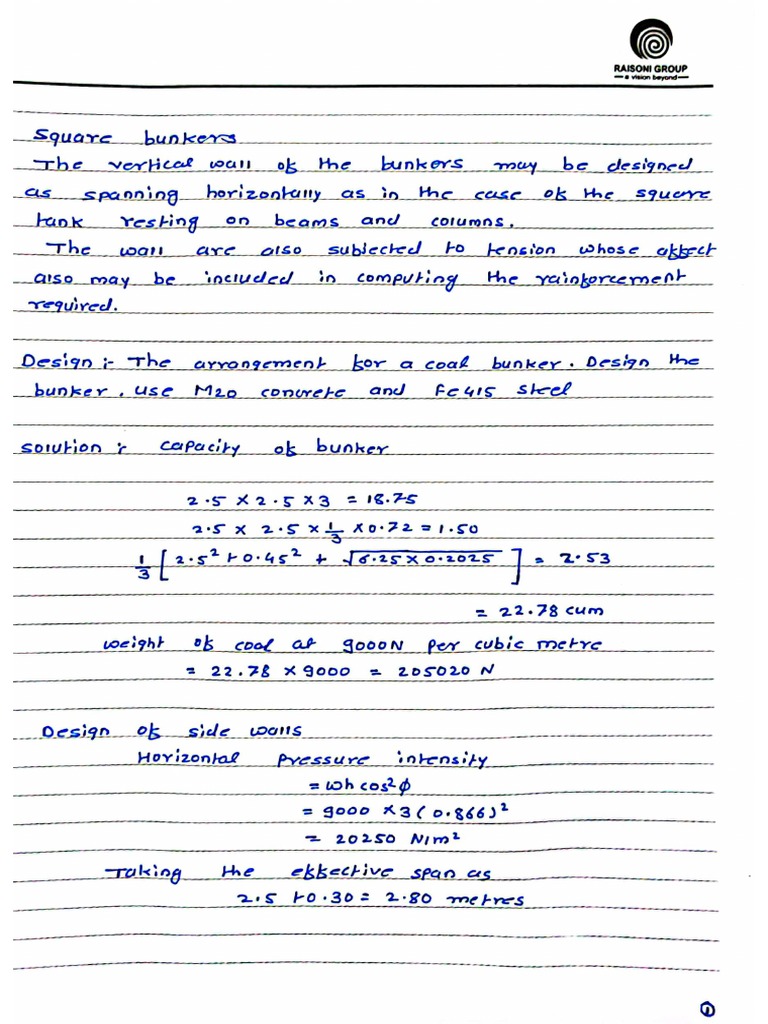 RAISONI GROUP
a vision beyond
Square bunkers
The vertical wall of the bunkers may be designed
as spanning horizontally as in the case of the square
tank resting on beams and columns.
The wall are also subjected to tension whose affect
also may be included in computing the rainforcement
required.
Design :- The arrangement for a coal bunker. Design the
bunker. Use M20 concrete and Fe415 steel
Solution :- capacity of bunker
2.5 × 2.5 × 3 = 18.75
2.5 × 2.5 × 1/3 × 0.72 = 1.50
1/3 [ 2.5² + 0.45² + √6.25 × 0.2025 ] = 2.53
= 22.78 cum
weight of coal at 9000N per cubic metre
= 22.78 × 9000 = 205020 N
Design of side walls
Horizontal pressure intensity
= wh cos²ϕ
= 9000 × 3 (0.866)²
= 20250 N/m²
Taking the effective span as
2.5 + 0.30 = 2.80 metres
1